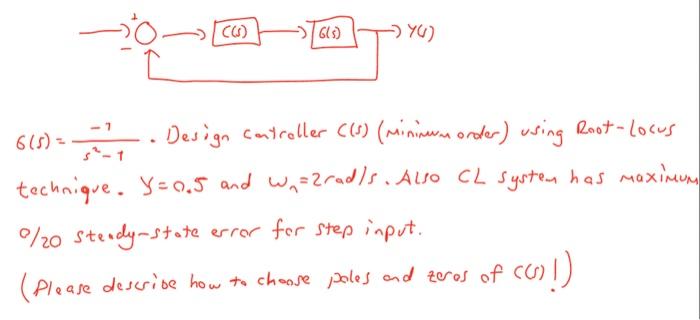 +
- C(s) G(s) Y(s)
G(s) = -1 / s²-1 . Design controller C(s) (Minimum order) using Root-Locus
technique. ζ=0.5 and ωn=2rad/s. Also CL system has maximum
%20 steady-state error for step input.
(Please describe how to choose poles and zeros of C(s)!)